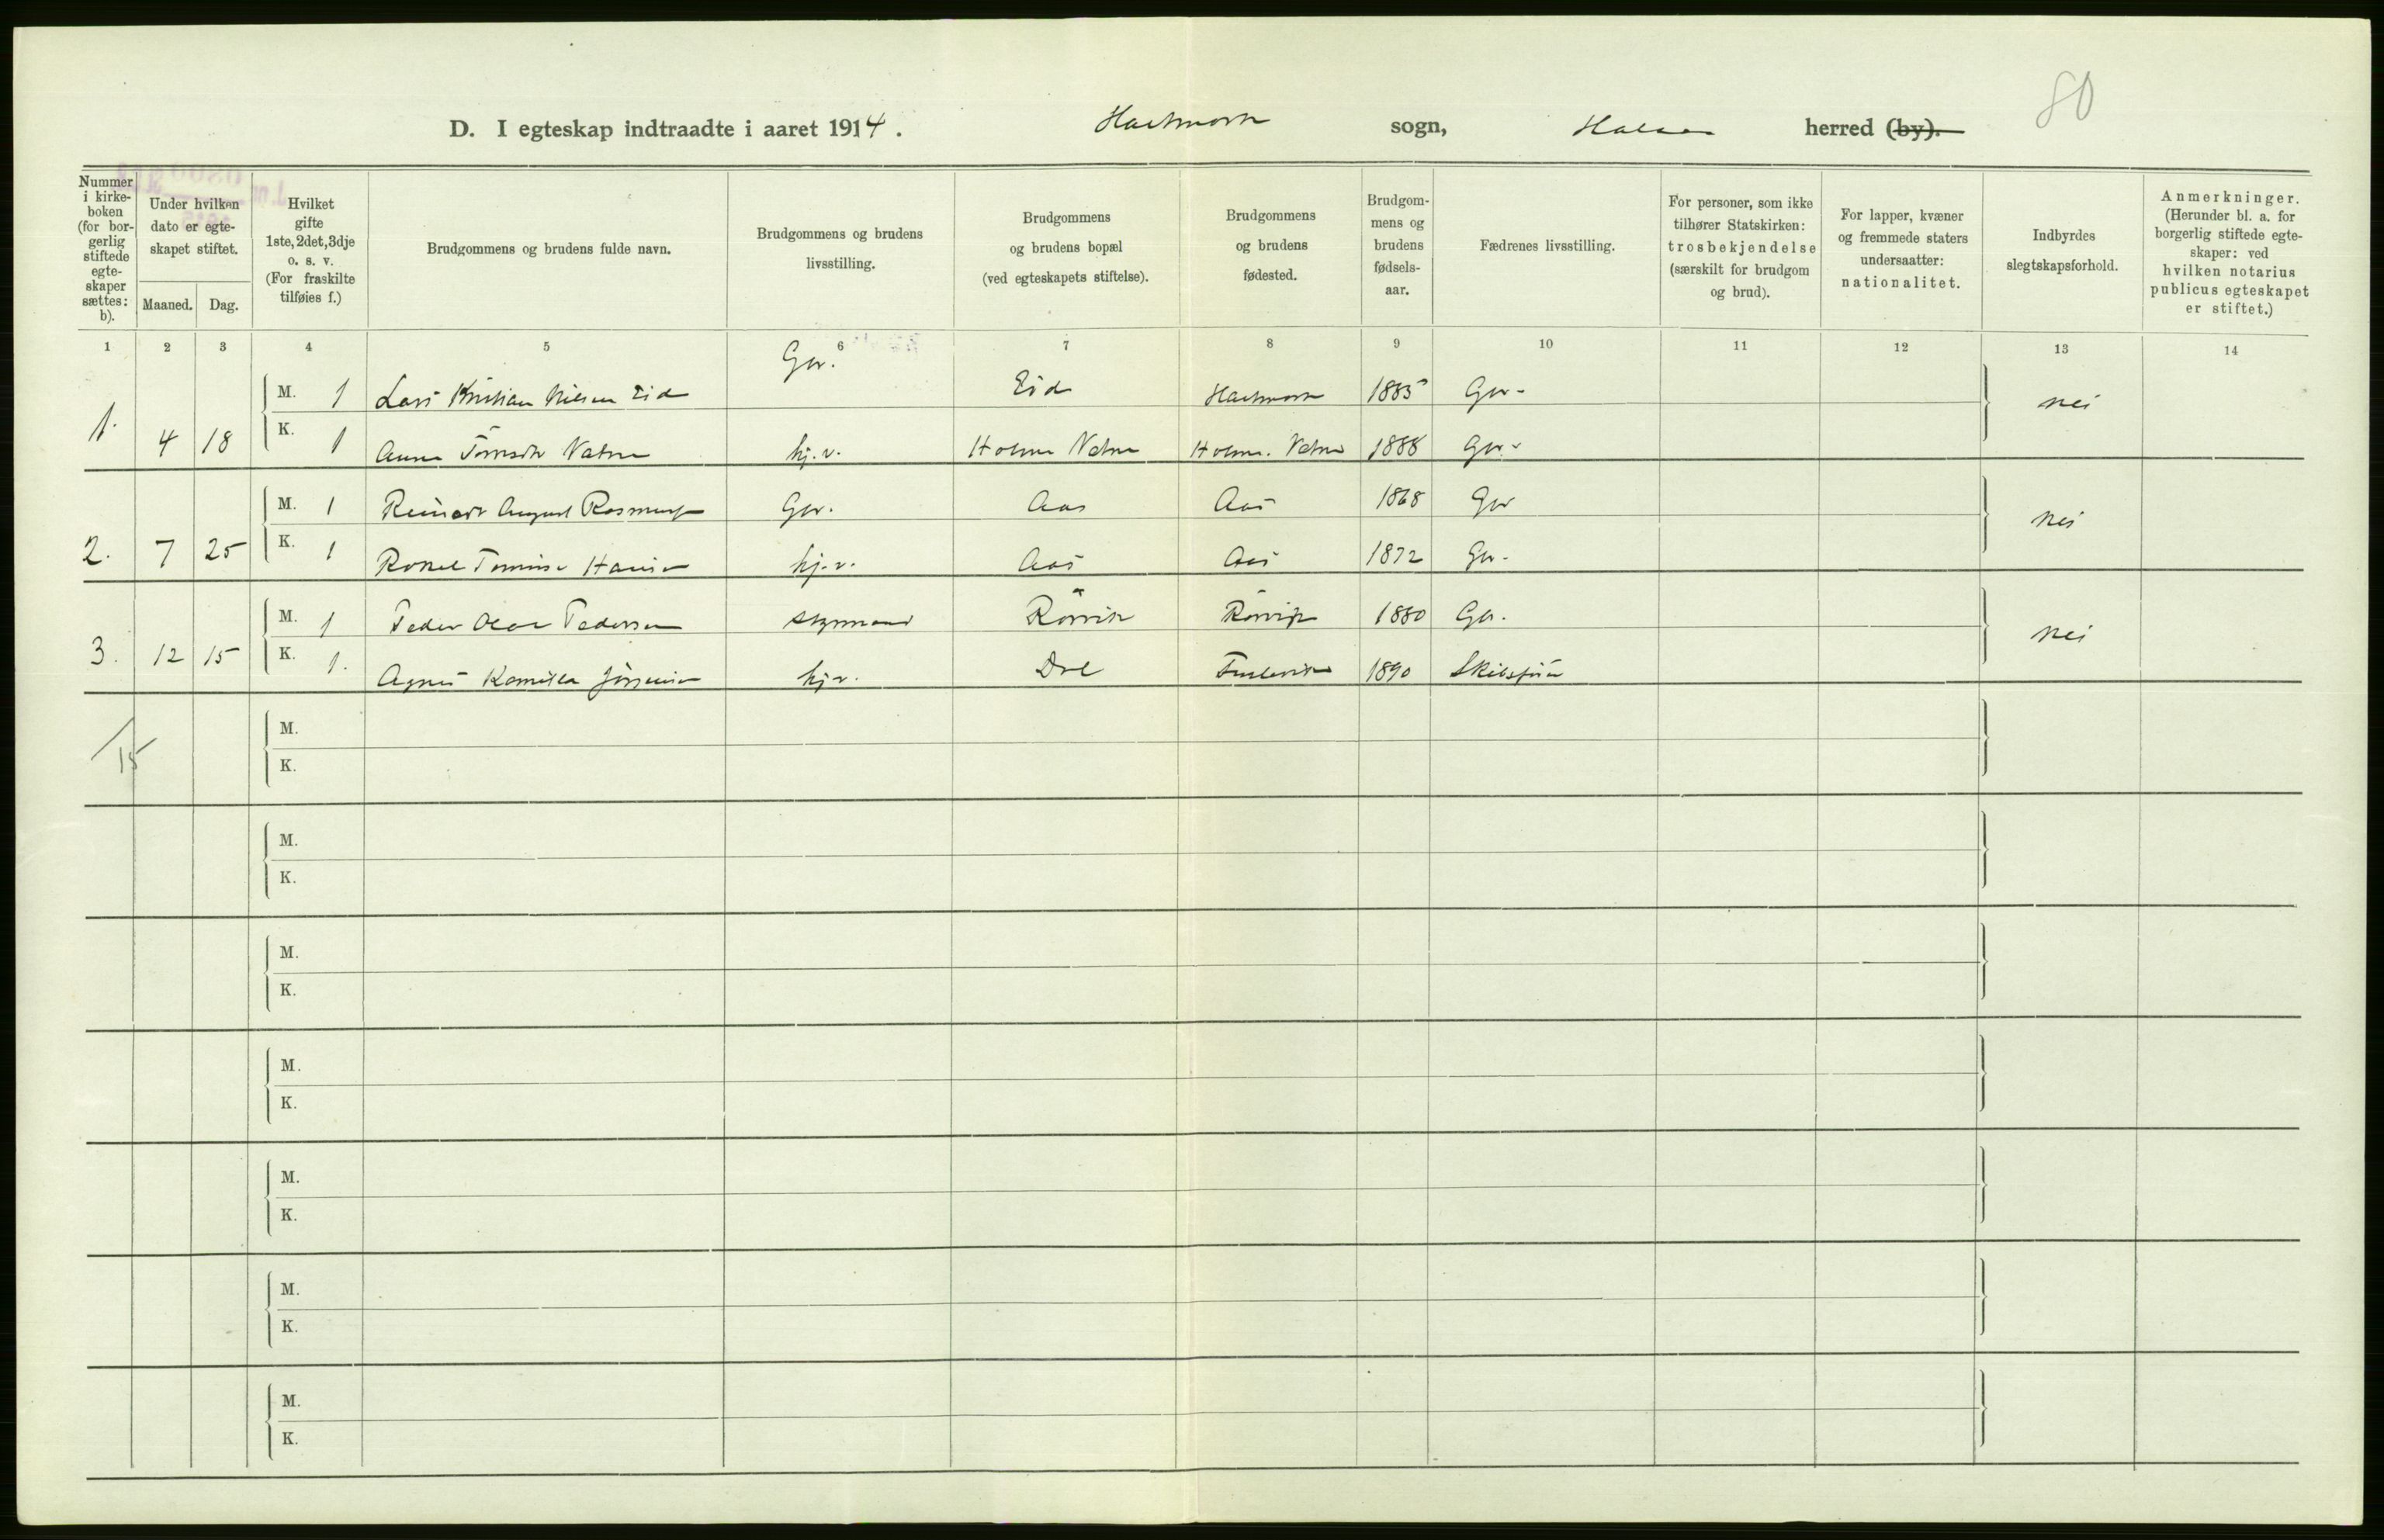 80
D. I egteskap indtraadte i aaret 1914. Hartmark sogn, Halsaa herred (by).
Nummer i kirke-boken (for bor-gerlig stiftede egte-skaper sættes: b).
Under hvilken dato er egte-skapet stiftet.
Maaned. Dag.
Hvilket gifte 1ste, 2det, 3dje o. s. v. (For fraskilte tilføies f.)
Brudgommens og brudens fulde navn.
Brudgommens og brudens livsstilling.
Brudgommens og brudens bopæl (ved egteskapets stiftelse).
Brudgommens og brudens fødested.
Brudgom-mens og brudens fødsels-aar.
Fædrenes livsstilling.
For personer, som ikke tilhører Statskirken: trosbekjendelse (særskilt for brudgom og brud).
For lapper, kvæner og fremmede staters undersaatter: nationalitet.
Indbyrdes slegtskapsforhold.
Anmerkninger. (Herunder bl. a. for borgerlig stiftede egte-skaper: ved hvilken notarius publicus egteskapet er stiftet.)
1 2 3 4 5 6 7 8 9 10 11 12 13 14
M. 1 Lars Kristian Nilsen Eid Gbr. Eid Hartmark 1885 Gbr. nei
1. 4 18 K. 1 Anna Vatne hj.v. Holme Vatne Holme. Vatne 1888 Gbr.
M. 1 Reinert August Gbr. Aas Aas 1868 Gbr nei
2. 7 25 K. 1 Tomine Hansen hj.v. Aas Aas 1872 Gbr.
M. 1 Peder Olai Pedersen styrmand Rörvik Rörvik 1880 Gbr. nei
3. 12 15 K. 1. Agnes Kamilla Jörgensen hj.v. 1890
15
M.
K.
M.
K.
M.
K.
M.
K.
M.
K.
M.
K.
M.
K.